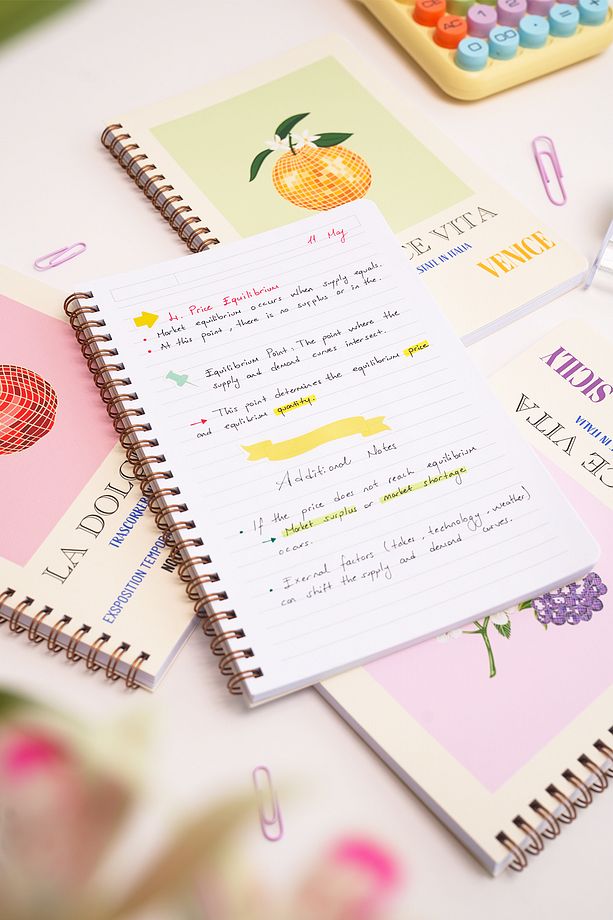 AC
0
00
=
+
CE VITA
STATI IN ITALIA
VENICE
11 May
4. Price Equilibrium
• Market equilibrium occurs when supply equals.
• At this point, there is no surplus or in the.
Equilibrium Point: The point where the
supply and demand curves intersect.
→ This point determines the equilibrium price
and equlibrium quantity.
Additional Notes
• If the price does not reach equilibrium
→ Market surplus or market shortage
occurs.
• Exernal factors (takes, technology, weather)
can shift the supply and demand curves.
LA DOLC
TRASCORRER
EXSPOSITION TEMPOR
NO
SICILY
IN ITALIA
CE VITA